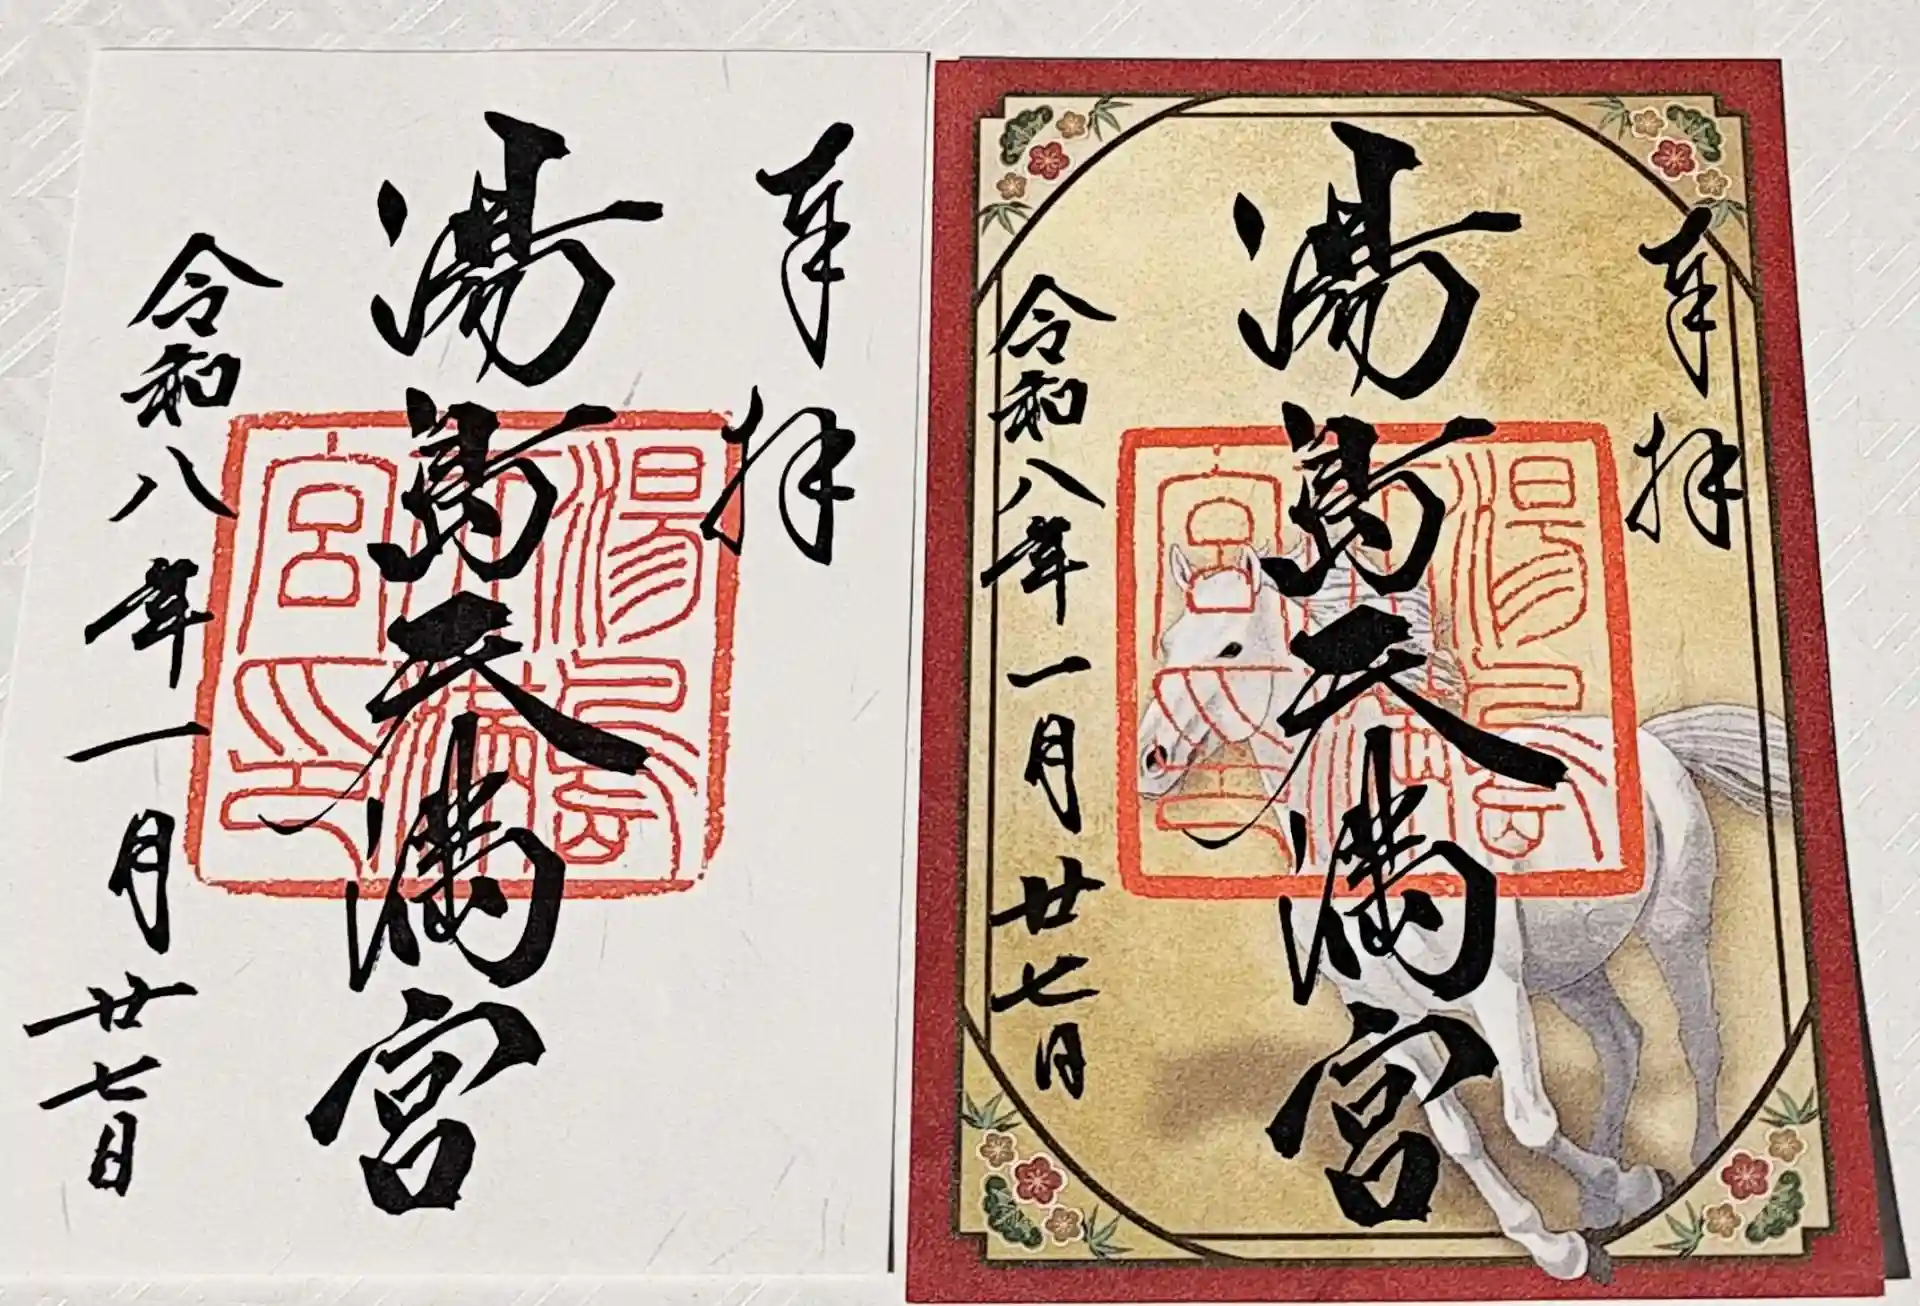 奉拝
湯島天満宮
湯島天満宮印
令和八年一月廿七日
奉拝
湯島天満宮
湯島天満宮印
令和八年一月廿七日